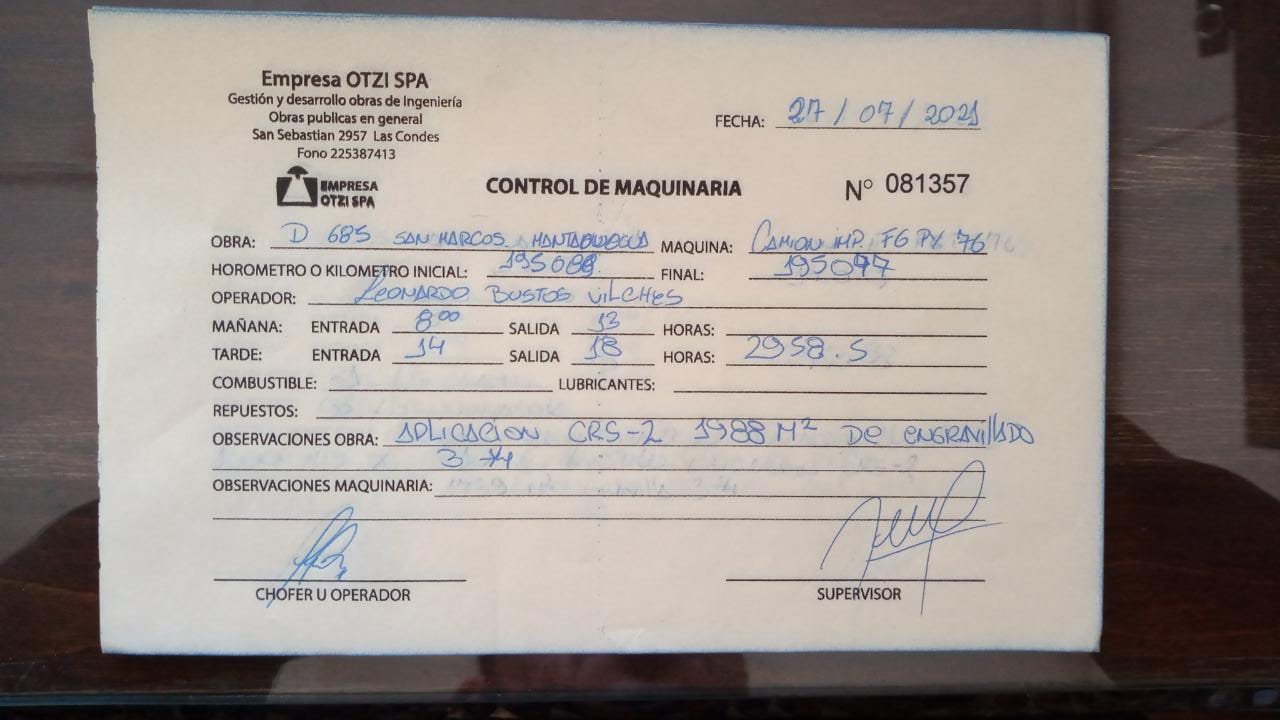 Empresa OTZI SPA
Gestión y desarrollo obras de Ingeniería
Obras publicas en general
San Sebastian 2957 Las Condes
Fono 225387413
FECHA: 27 / 07 / 2021
EMPRESA
OTZI SPA
CONTROL DE MAQUINARIA
Nº 081357
OBRA: D 685 SAN MARCOS MAQUINA: CAMION IMP. FG 76
HOROMETRO O KILOMETRO INICIAL: FINAL: 195097
OPERADOR: LEONARDO BUSTOS VILCHES
MAÑANA: ENTRADA 8:00 SALIDA 13 HORAS:
TARDE: ENTRADA 14 SALIDA 18 HORAS: 2958.5
COMBUSTIBLE: LUBRICANTES:
REPUESTOS:
OBSERVACIONES OBRA: APLICACION CRS-2 1988 M² DE ENGRAVILLADO
OBSERVACIONES MAQUINARIA:
CHOFER U OPERADOR
SUPERVISOR